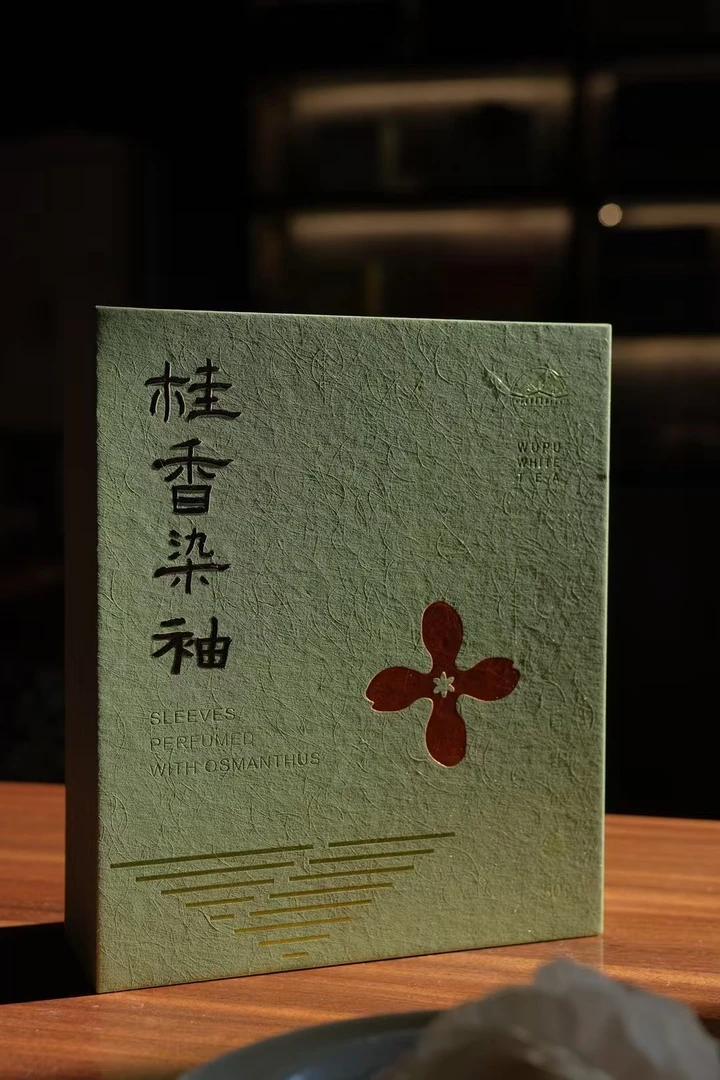 桂香染袖
SLEEVES
PERFUMED
WITH OSMANTHUS
WUPU
WHITE
TEA